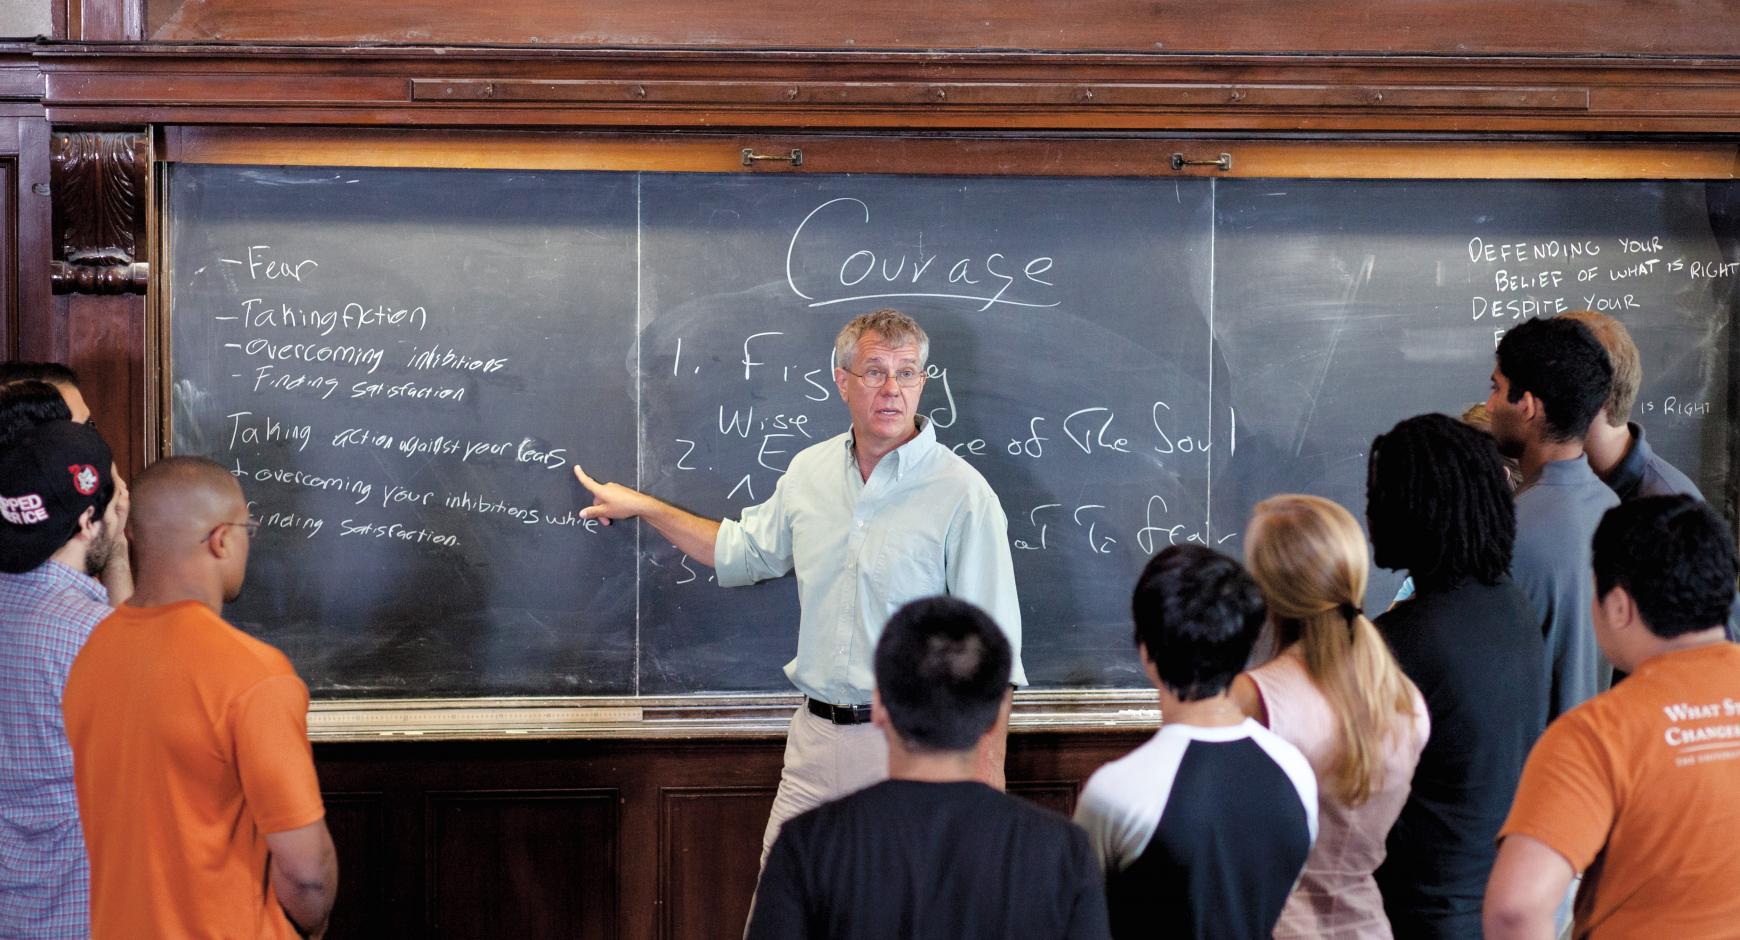 - Fear
- Taking Action
- Overcoming inhibitions
- Finding satisfaction
Taking action against your fears
+ overcoming your inhibitions while
finding satisfaction.
Courage
1.
Wise
2. of The Soul
To fear
3.
DEFENDING YOUR
BELIEF OF WHAT IS RIGHT
DESPITE YOUR
IS RIGHT
WHAT